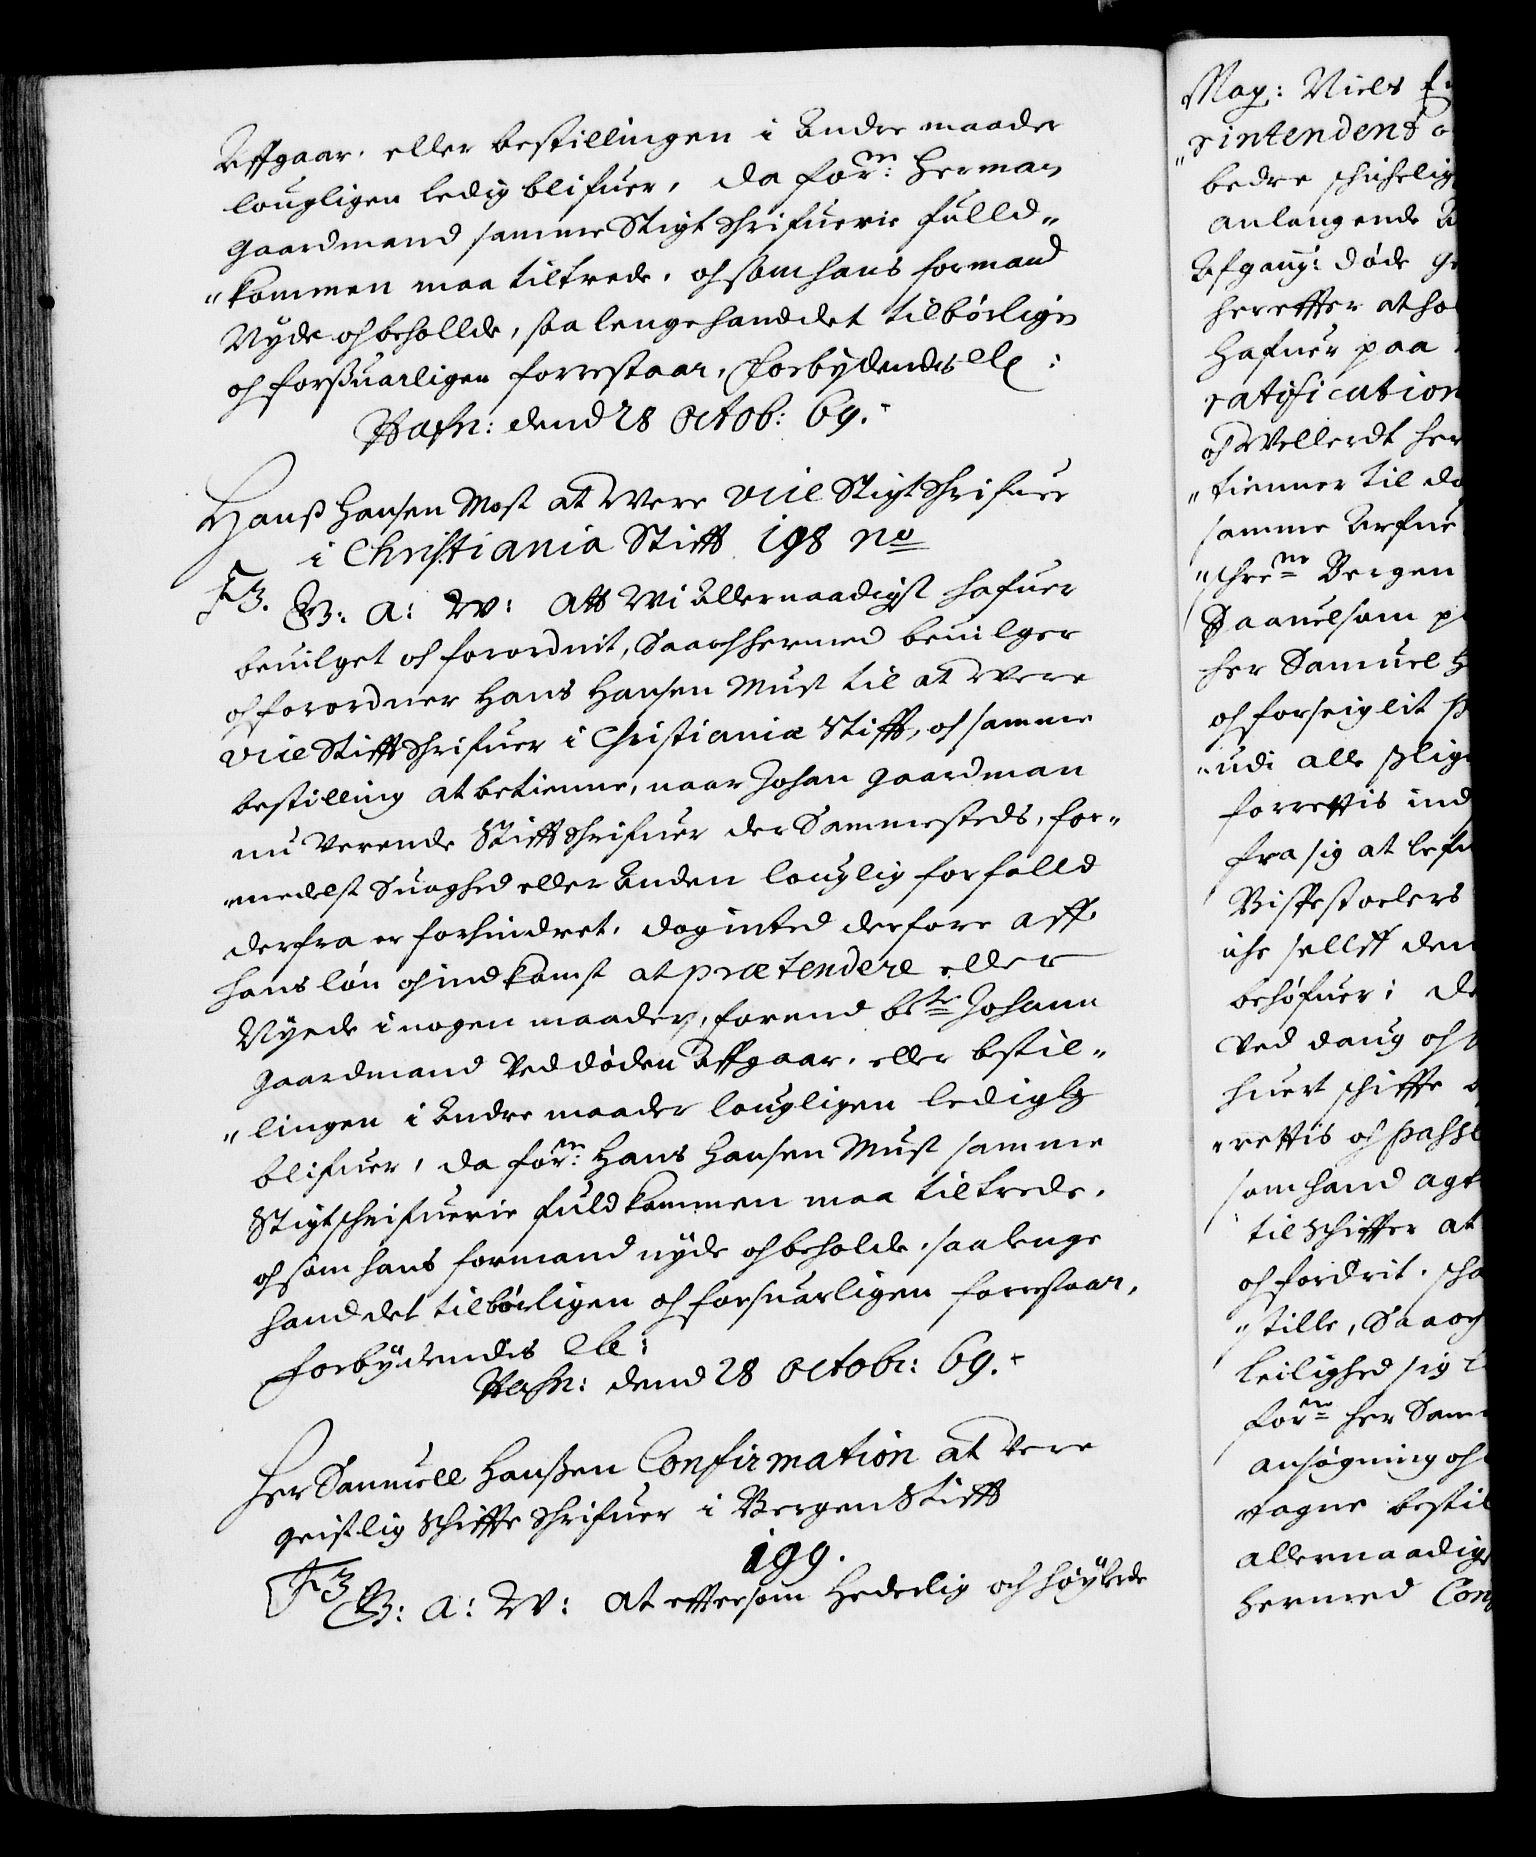 Affgaar, eller bestillingen i Andre maader
lougligen ledig blifuer, da for:ne Herman
Gaardmand samme Stigtschrifuerie fulld„
„kommen maa tiltrede, och som hans formand
Nyde och behollde, saa lenge hand det tilbørligen
och forsuarligen forrestaar, Forbydendis etc:
Hafn: dend 28 Octob: 69.
Hanss Hansen Most at Were vice Stigtschrifuer
i Christiania Stifft 198 no
F3. G: A: W: Att Wi Allernaadigst hafuer
beuilget och forordnit, Saa och hermed beuilger
och forordner Hans Hansen Must til at Were
vice Stifftschrifuer i Christianiæ Stifft, och samme
bestilling at betienne, naar Johan Gaardman
nu Verende Stifftschrifuer der Sammesteds, for„
„medelst Suaghed eller Anden louglig forfalld
derfra er forhindret, dog inted derfore aff
hans løn och indkomst at prætendere eller
Nyde i nogen maader, forend be:te Johann
Gaardmand Ved døden Affgaar, eller bestil„
„lingen i Andre maader lougligen ledig
blifuer, da for:ne Hans Hansen Must samme
Stigtschrifuerie fuldkommen maa tiltrede,
och som hans formand nyde och beholde, saa lenge
hand det tilbørligen och forsuarligen forrestaar,
Forbydendis etc:
Hafn: dend 28 Octobr: 69.
Her Samuell Hanssen Confirmation at Vere
geistlig Schiffte Schrifuer i Bergen Stifft
199.
F3 G: A: W: At eftersom Hederlig och høylerde
Mag: Niels
„rintendent
bedre schichelig
anlangende
Afgang: døde
herefter at
Hafuer paa
ratification
och Wellerdt her
„tienner til
samme Arfue
„schre:ne Bergen
Saauelsom
her Samuel
och forseiglit
„udi alle
forrettis ind
fra sig at
Bispestoelers
iche sellff den
behøfuer;
ved daug och
huert schiffte
„rettis och
som hand agt
til schiffter at
och fordrit,
„stille, Saa och
leilighed sig
for:ne her Sam
ansøgning och
tagne bestil
allernaadigst
hermed Con